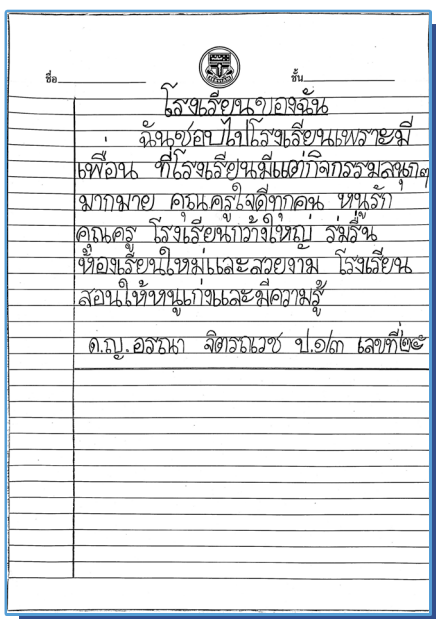 ชื่อ ชั้น
โรงเรียนของฉัน
ฉันชอบไปโรงเรียนเพราะมี
เพื่อน ที่โรงเรียนมีแต่กิจกรรมสนุกๆ
มากมาย คุณครูใจดีทุกคน หนูรัก
คุณครู โรงเรียนกว้างใหญ่ ร่มรื่น
ห้องเรียนใหม่และสวยงาม โรงเรียน
สอนให้หนูเก่งและมีความรู้
ด.ญ. อรณา จิตรถเวช ป.๑/๓ เลขที่๒๕